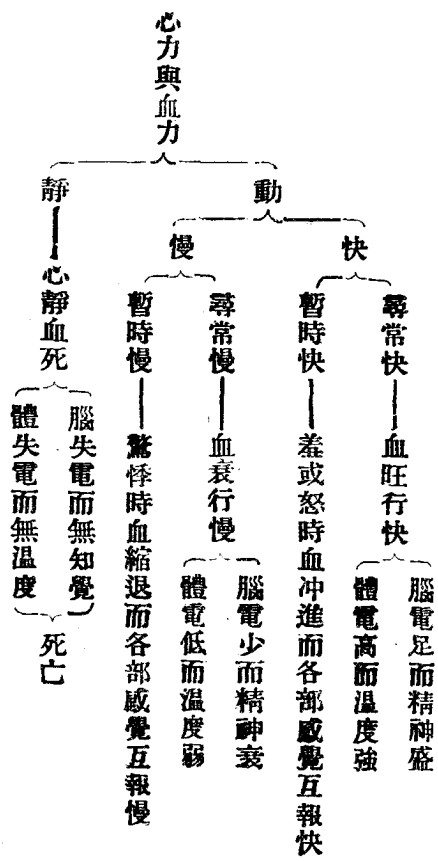 心力與血力
動
快
尋常快
血旺行快
腦電足而精神盛
體電高而温度強
暫時快
羞或怒時血冲進而各部感覺互報快
慢
尋常慢
血衰行慢
腦電少而精神衰
體電低而温度弱
暫時慢
驚悸時血縮退而各部感覺互報慢
靜
心靜血死
腦失電而無知覺
體失電而無温度
死亡